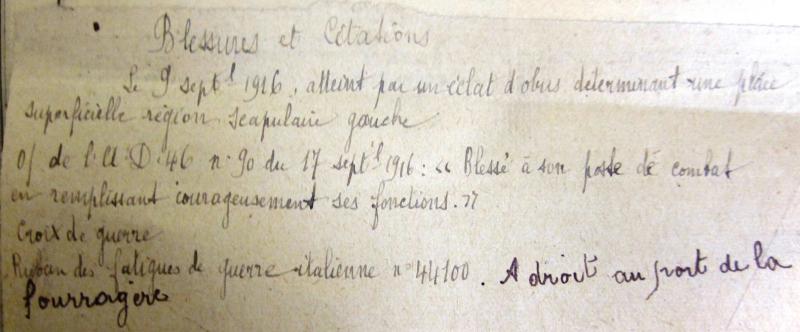 Blessures et Citations
Le 9 sept.l 1916, atteint par un éclat d'obus déterminant une plaie
superficielle région scapulaire gauche
O/ de l'A D 46 n° 90 du 17 sept.l 1916 : « Blessé à son poste de combat
en remplissant courageusement ses fonctions. »
Croix de guerre
Ruban des fatigues de guerre italienne n° 44100. A droit au port de la
fourragère